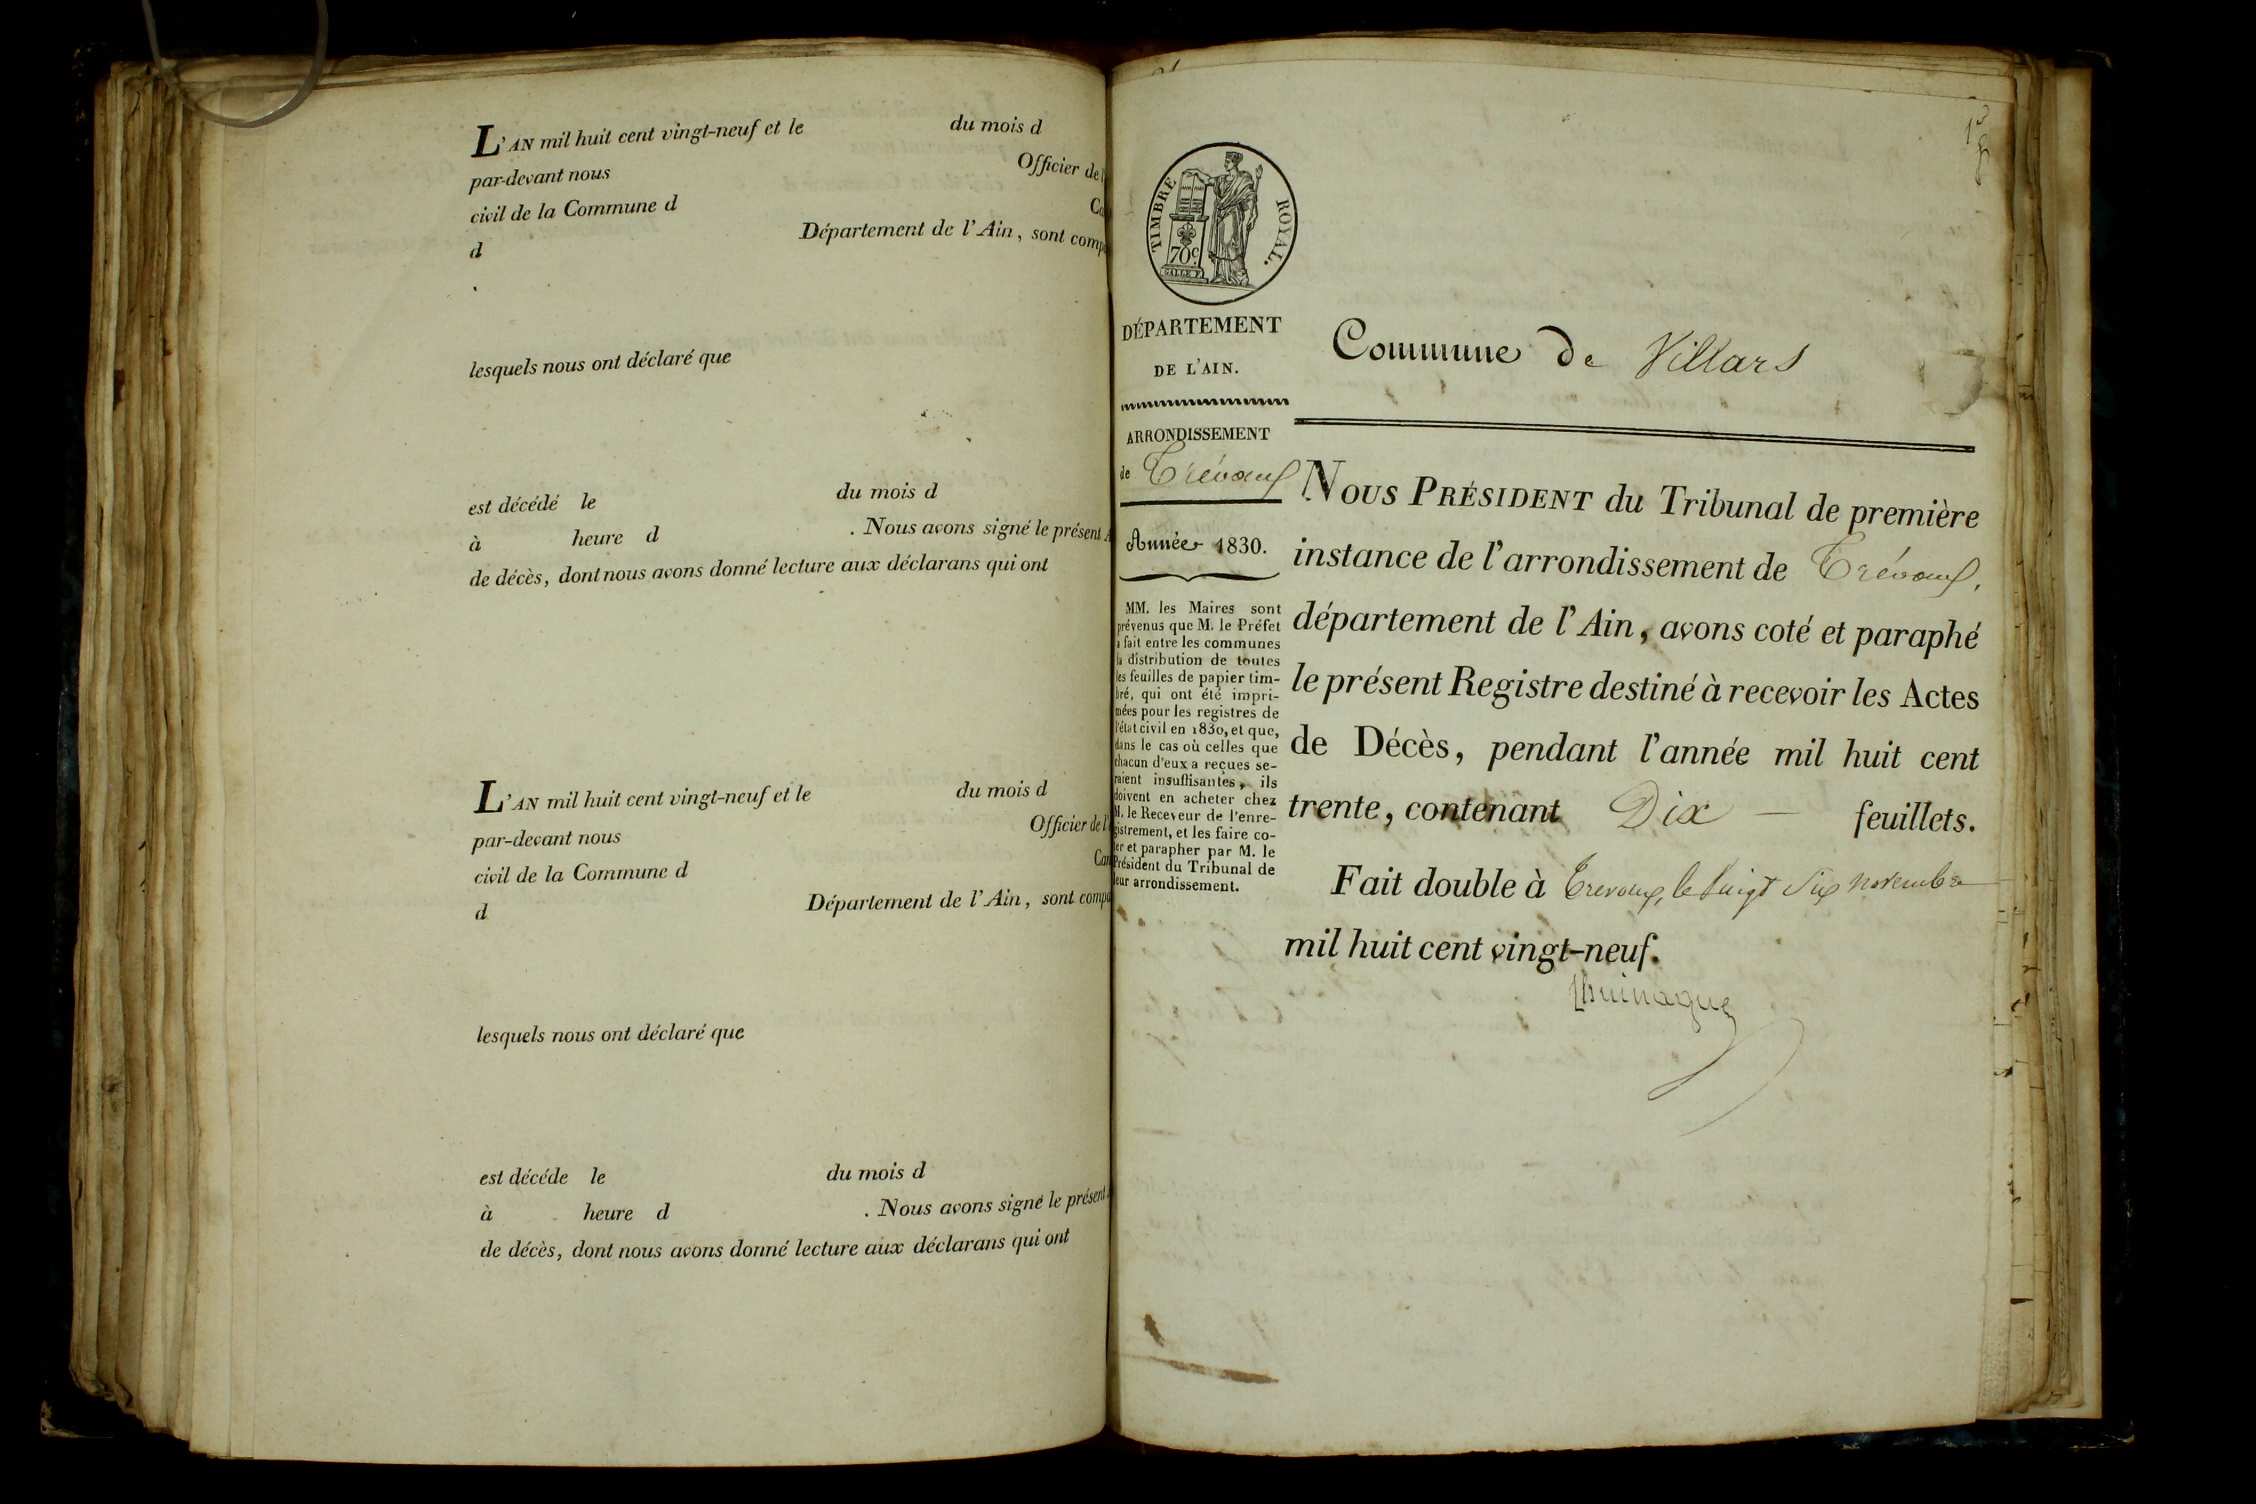 L'AN mil huit cent vingt-neuf et le du mois d
par-devant nous Officier de l
civil de la Commune d
d Département de l'Ain, sont comp
lesquels nous ont déclaré que
est décédé le du mois d
à heure d . Nous avons signé le présent
de décès, dont nous avons donné lecture aux déclarans qui ont
L'AN mil huit cent vingt-neuf et le du mois d
par-devant nous Officier de l
civil de la Commune d
d Département de l'Ain, sont comp
lesquels nous ont déclaré que
est décéde le du mois d
à heure d . Nous avons signé le présent
de décès, dont nous avons donné lecture aux déclarans qui ont
TIMBRE ROYAL.
70c
DÉPARTEMENT
DE L'AIN.
ARRONDISSEMENT
de Trévoux
Année 1830.
MM. les Maires sont
prévenus que M. le Préfet
a fait entre les communes
la distribution de toutes
les feuilles de papier tim-
bré, qui ont été impri-
mées pour les registres de
l'état civil en 1830, et que,
dans le cas où celles que
chacun d'eux a reçues se-
raient insuffisantes, ils
doivent en acheter chez
M. le Receveur de l'enre-
gistrement, et les faire co-
ter et parapher par M. le
Président du Tribunal de
leur arrondissement.
Commune de Villars
NOUS PRÉSIDENT du Tribunal de première
instance de l'arrondissement de Trévoux,
département de l'Ain, avons coté et paraphé
le présent Registre destiné à recevoir les Actes
de Décès, pendant l'année mil huit cent
trente, contenant Dix — feuillets.
Fait double à Trevoux, le vingt six novembre
mil huit cent vingt-neuf.